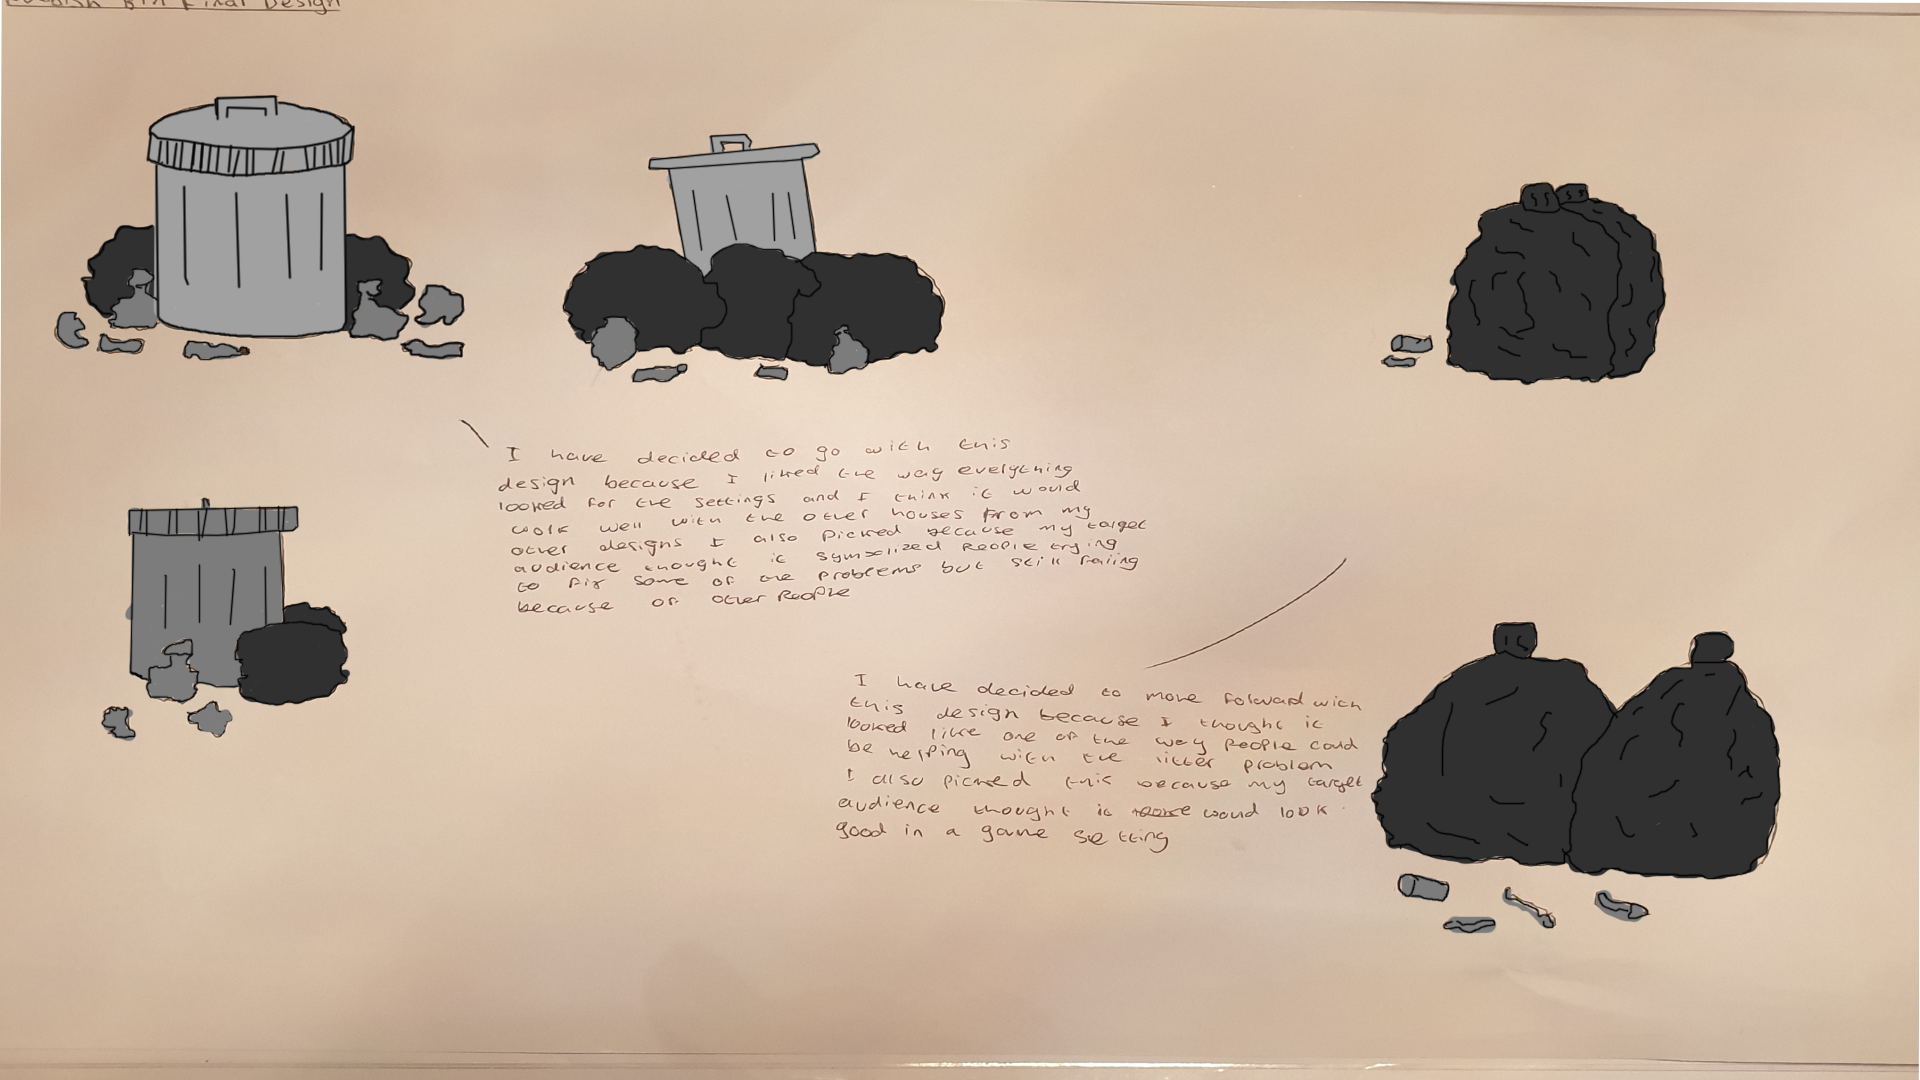 Rubbish Bin Final Design
I have decided to go with this
design because I liked the way everything
looked for the settings and I think it would
work well with the other houses from my
other designs I also picked because my target
audience thought it symbolized people trying
to fix some of the problems but still failing
because of other people
I have decided to move forward with
this design because I thought it
looked like one of the way people could
be helping with the litter problem
I also picked this because my target
audience thought it would look
good in a game setting